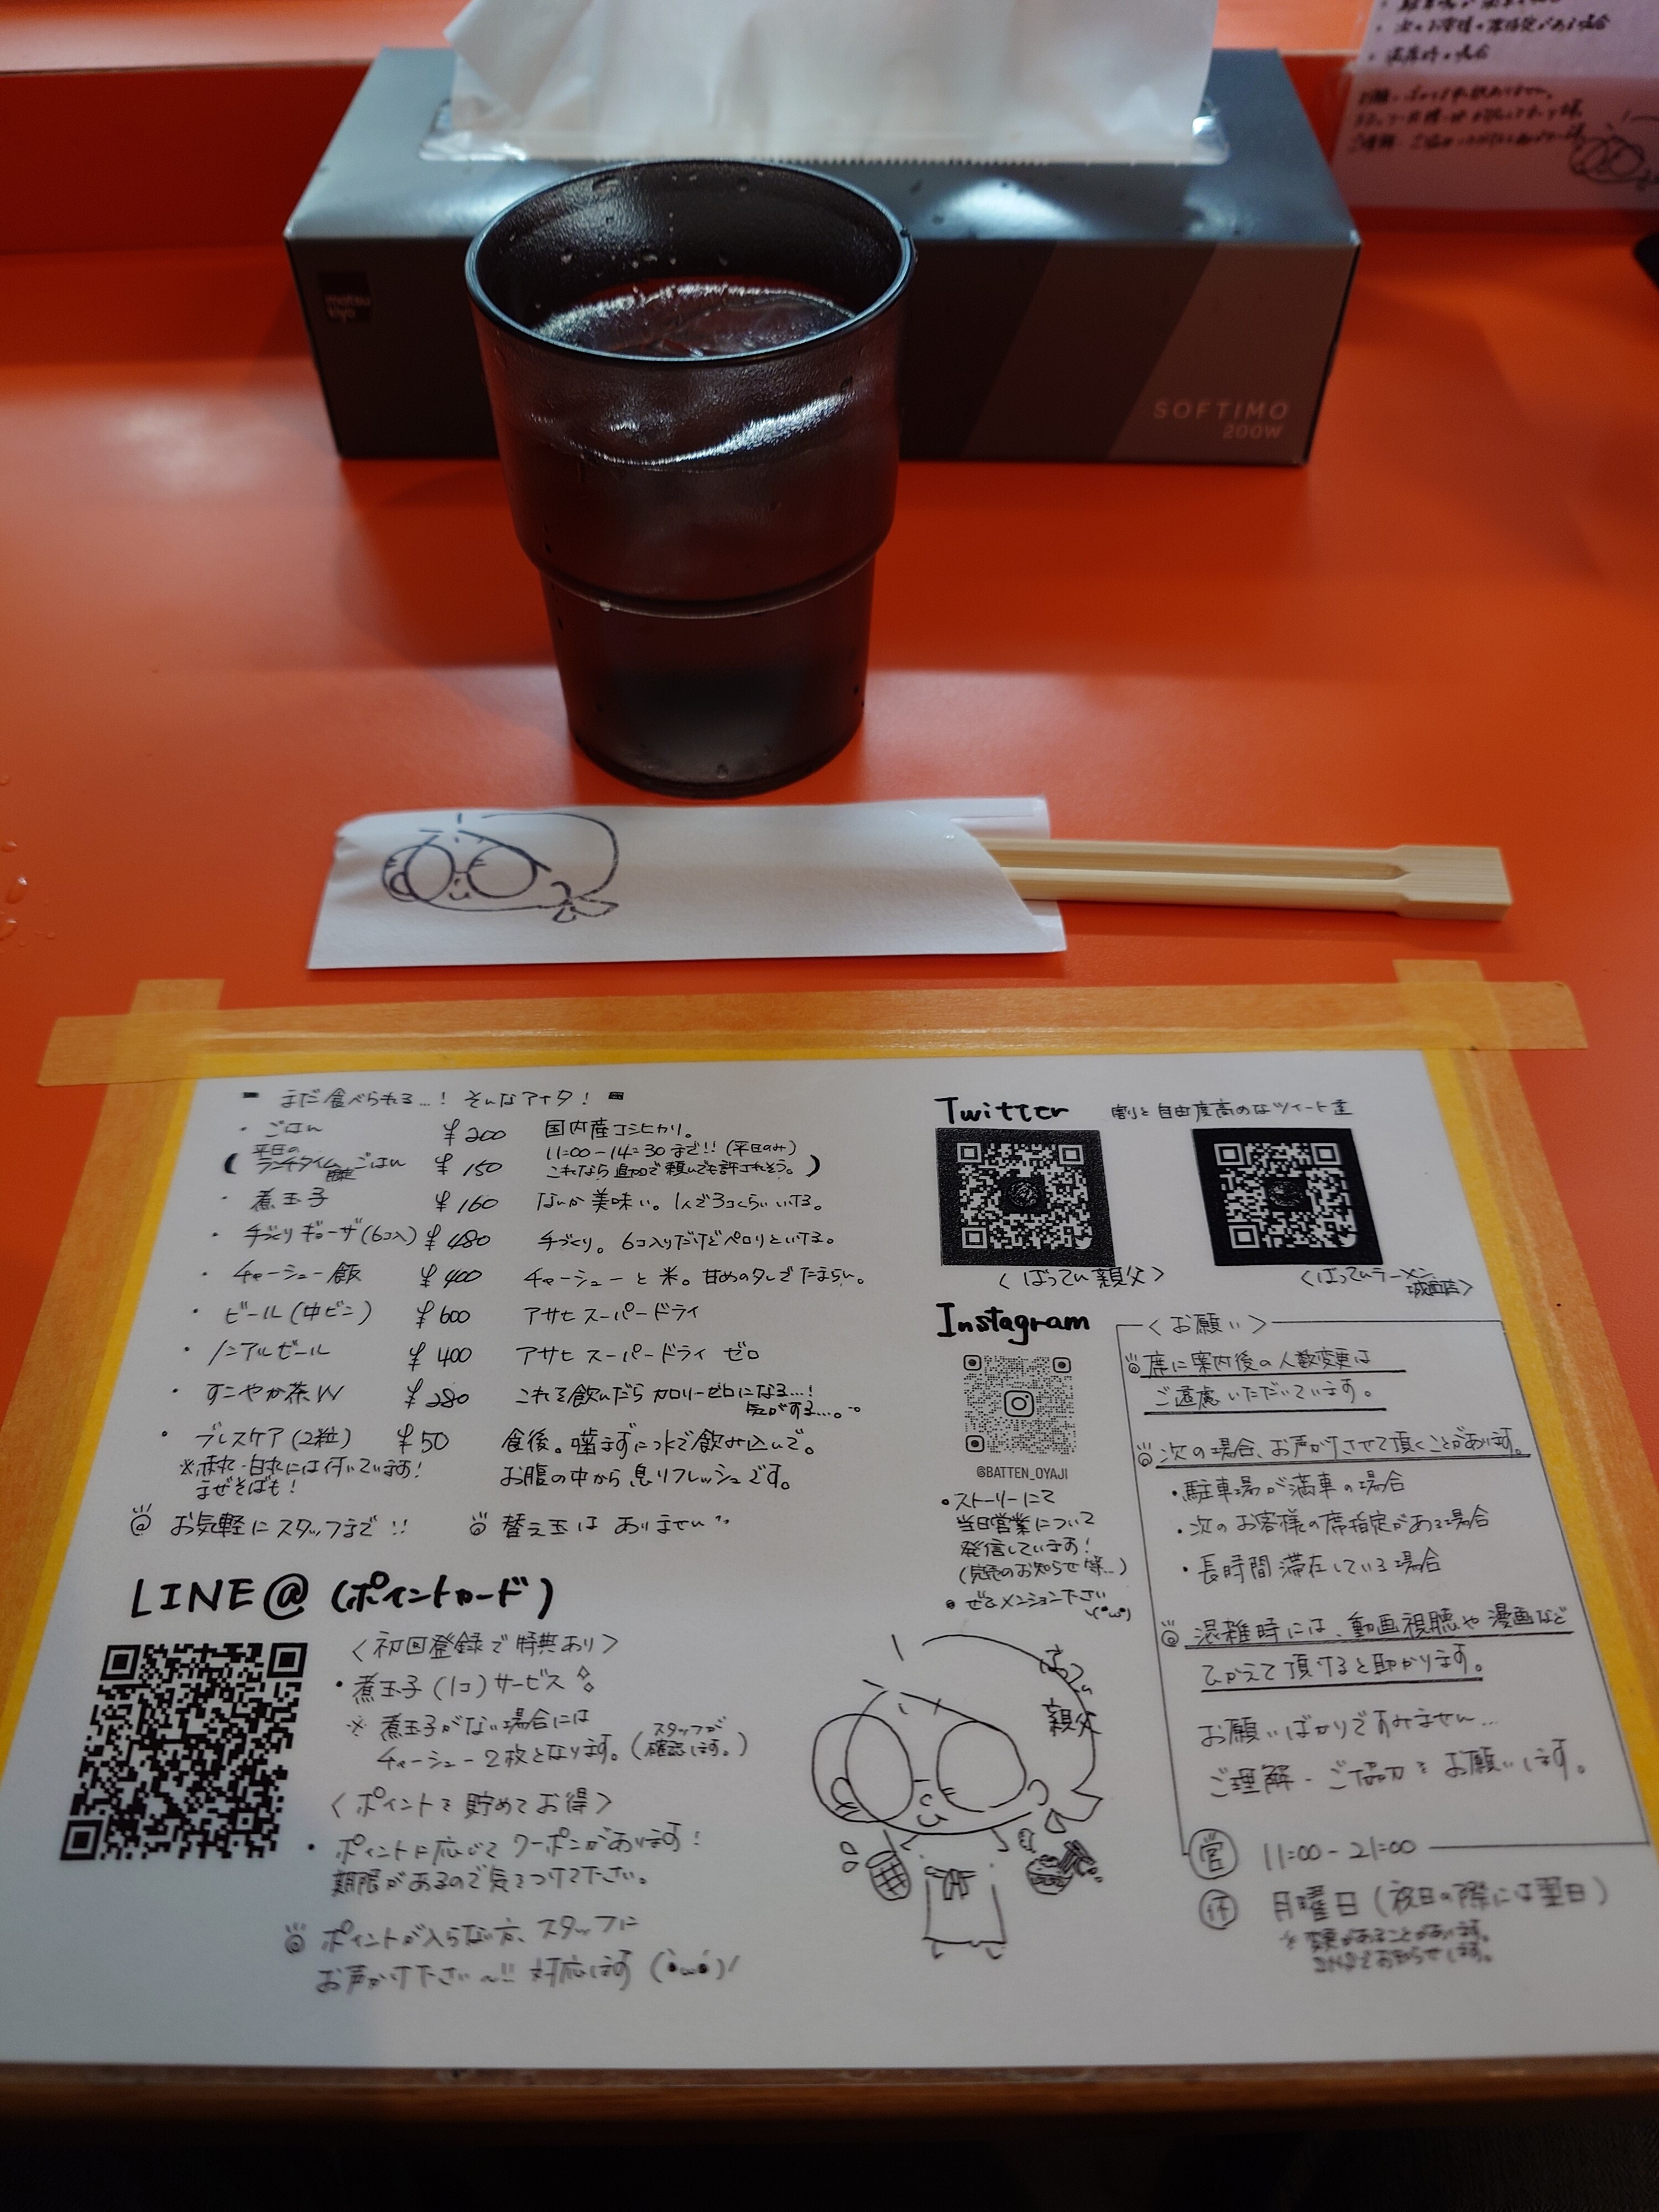 ・次のお客様の席指定がある場合
matsu
kiyo
SOFTIMO
200W
まだ食べられる…！そんなアナタ！
・ごはん ¥200 国内産コシヒカリ。
(平日のランチタイム限定ごはん ¥150 11:00-14:30まで!!(平日のみ)
これなら追加で頼んでも許されそう。)
・煮玉子 ¥160 なんか美味い。1人で3コくらいいける。
・手づくりギョーザ(6コ入) ¥480 手づくり。6コ入りだけどペロリといける。
・チャーシュー飯 ¥400 チャーシューと米。甘めのタレがたまらん。
・ビール(中ビン) ¥600 アサヒスーパードライ
・ノンアルビール ¥400 アサヒスーパードライゼロ
・すこやか茶W ¥280 これを飲んだらカロリーゼロになる…！
気がする…。
・ブレスケア(2粒) ¥50 食後。噛まずに水で飲み込んで。
※赤丸・白丸には付いています！ お腹の中から息リフレッシュです。
まぜそばも！
お気軽にスタッフまで!! 替え玉はありません
LINE@(ポイントカード)
〈初回登録で特典あり〉
・煮玉子(1コ)サービス
※煮玉子がない場合には
チャーシュー2枚となります。(スタッフが確認します。)
〈ポイントを貯めてお得〉
・ポイントに応じてクーポンがあります！
期限があるので気をつけて下さい。
ポイントが入らない方、スタッフに
お声かけ下さい〜!! 対応します(•̀ω•́)!
Twitter 割と自由度高めなツイート達
〈ばってん親父〉 〈ばってんラーメン
Instagram
@BATTEN_OYAJI
・ストーリーにて
当日営業について
発信しています！
(完売のお知らせ等…)
・ぜひメンション下さい
ばってん
親父
〈お願い〉
席に案内後の人数変更は
ご遠慮いただいています。
次の場合、お声がけさせて頂くことがあります。
・駐車場が満車の場合
・次のお客様の席指定がある場合
・長時間滞在している場合
混雑時には、動画視聴や漫画など
ひかえて頂けると助かります。
お願いばかりですみません…
ご理解・ご協力をお願いします。
営 11:00-21:00
休 月曜日(祝日の際には翌日)
※変更があることがあります。
SNSでお知らせします。